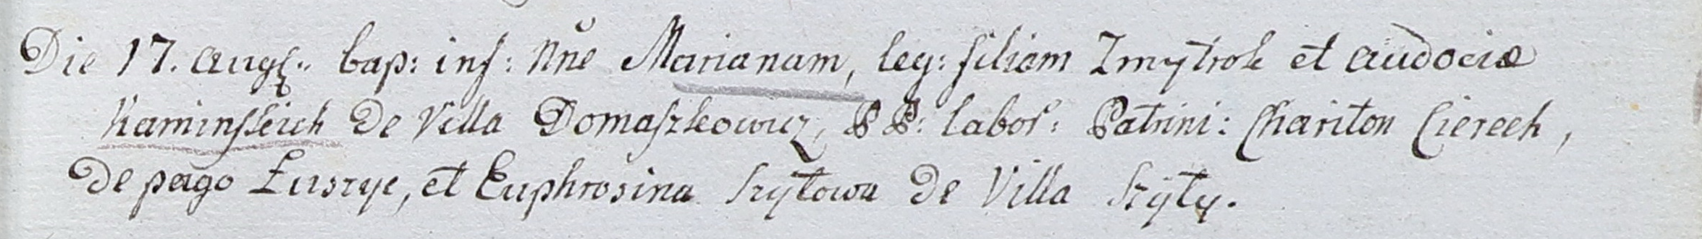 Die 17. Aug: bap: inf: Nne Marianam, leg: filiam Zmytrok et Audociæ
Kaminskich de Villa Domaszkowicz, PP: labor: Patrini: Chariton Cierech,
de pago Łuszyc, et Euphrosina Szyłowa de Villa Szyły.